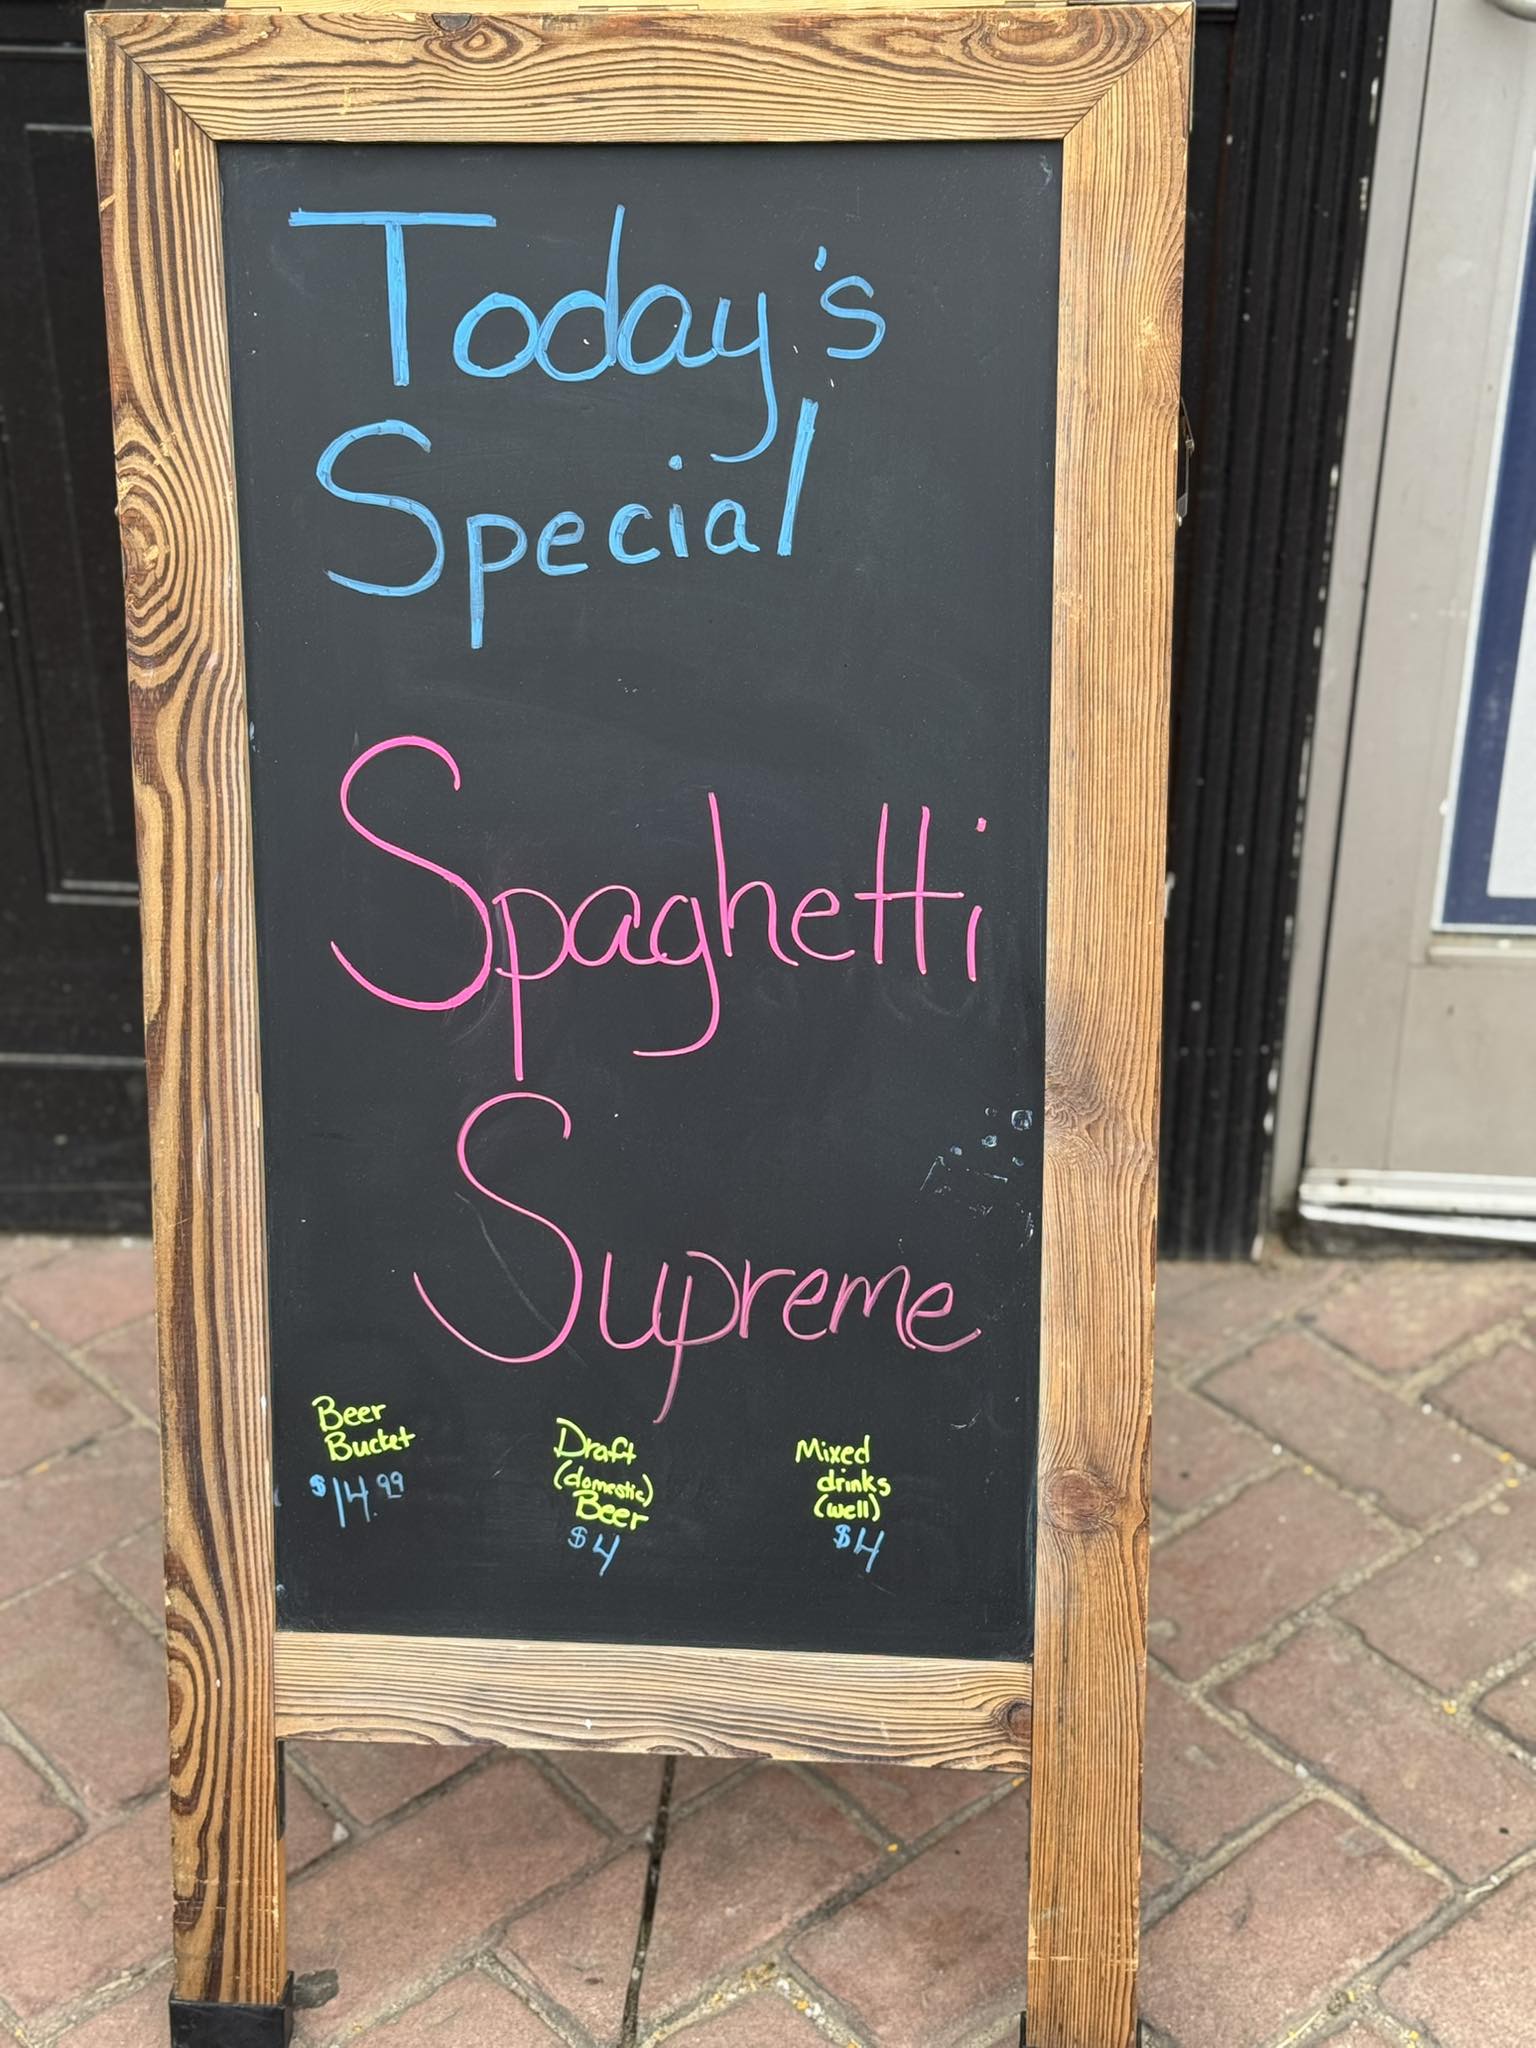 Today's
Special
Spaghetti
Supreme
Beer
Bucket
$14.99
Draft
(domestic)
Beer
$4
Mixed
drinks
(well)
$4